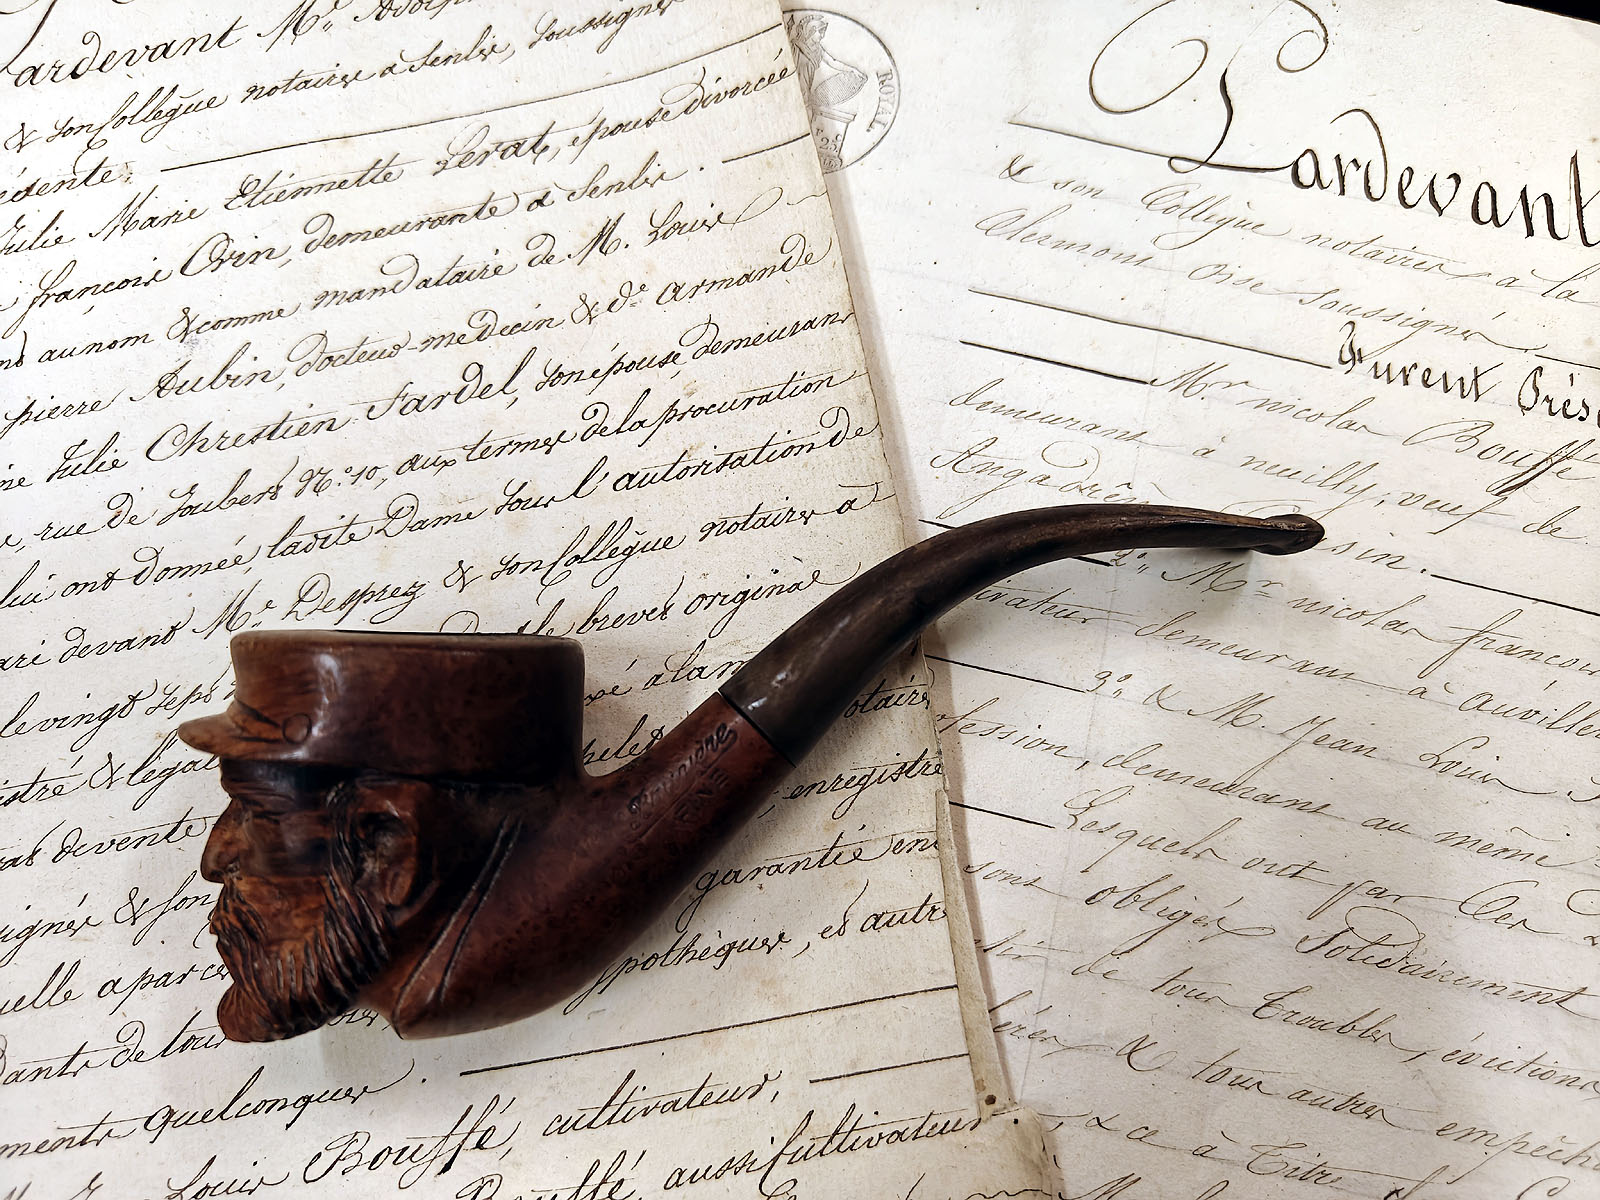 Pardevant Me
& son Collègue notaires à Senlis, soussignés
Julie Marie Etiennette Lerat, épouse divorcée
françois Orin, demeurante à Senlis.
au nom & comme mandataire de M. Louis
pierre Aubin, docteur-medecin & de. armande
Julie Chrestien Fardel, son épouse, demeurant
rue de Joubert No. 10, aux termes de la procuration
lui ont donnée, ladite Dame sous l'autorisation de
devant Me. Desprez & son Collègue notaires à
brevet original
le vingt sept
à la
notaire
& légal
enregistré
de vente
garantie
& son
hypothèques, et autr
a par ces
de tous
quelconques.
Louis Bouffé, cultivateur,
Bouffé, aussi Cultivateur
ROYAL
Pardevant
& son Collègue notaires à la
Clermont Oise soussignés.
Furent Prés
Mr. nicolas Bouffé
demeurant à neuilly, veuf de
Angadrême
2o. Mr. nicolas françois
demeurant à auviller
3o. & M. Jean Louis
demeurant au même
Lesquels ont par Ces
sont obligés Solidairement
de tous Troubles, évictions
& tous autres empêch
& ce à Titre
M.